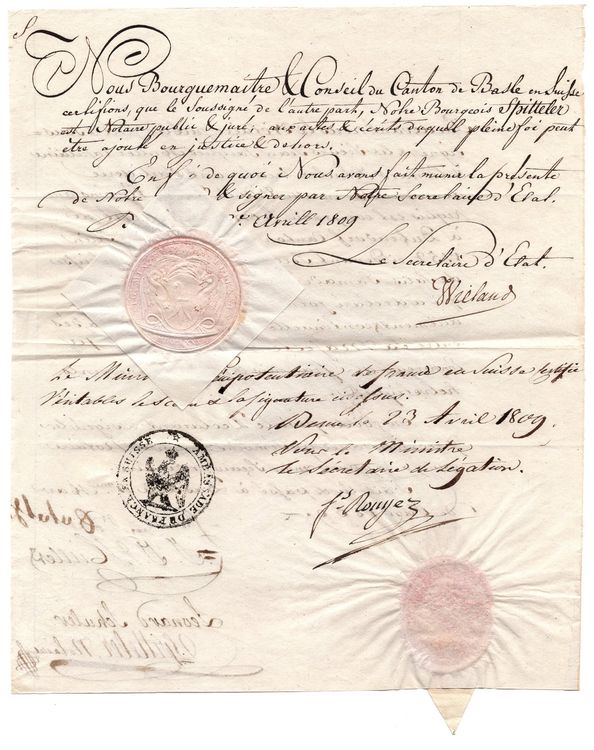 Nous Bourguemaitre & Conseil du Canton de Basle en Suisse
certifions, que le Soussigné de l'autre part, Notre Bourgeois Spitteler
est Notaire public & juré, aux actes & écrits duquel pleine foi peut
être ajoutée en justice & dehors.
En foi de quoi Nous avons fait munir la présente
de Notre & signer par Notre Secretaire d'Etat.
Avrill 1809
Le Secretaire d'Etat.
Wieland
Le Ministre Plénipotentiaire de france en Suisse certifie
Véritables le sceau & la signature cidessus.
Berne le 23 Avril 1809.
Pour le Ministre
le Secretaire de Légation.
f. Rouyer
AMBASSADE DE FRANCE EN SUISSE
Leonard Schuler
Spitteler Notaire